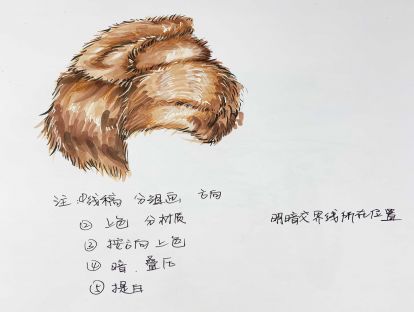 注 ①线稿 分组画 方向
② 上色 分材质
③ 按方向上色
④ 暗、叠压
⑤ 提白
明暗交界线所在位置